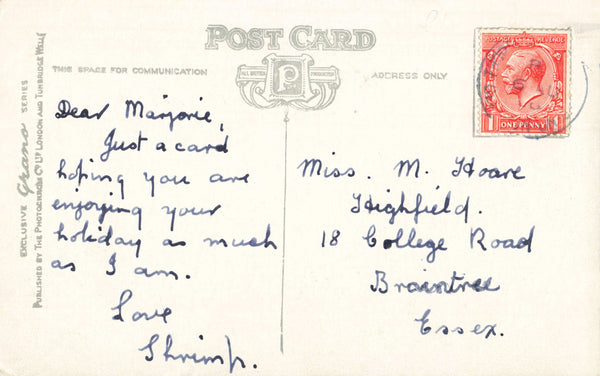 POST CARD
THIS SPACE FOR COMMUNICATION
ALL BRITISH PRODUCTION
P
ADDRESS ONLY
EXCLUSIVE Grano SERIES
PUBLISHED BY THE PHOTOCHROM Co. Ltd. LONDON AND TUNBRIDGE WELLS
Dear Marjorie,
Just a card
hoping you are
enjoying your
holiday as much
as I am.
Love
Shrimp.
Miss. M. Hoare
Highfield.
18 College Road
Braintree
Essex.
POSTAGE REVENUE
1 ONE PENNY 1